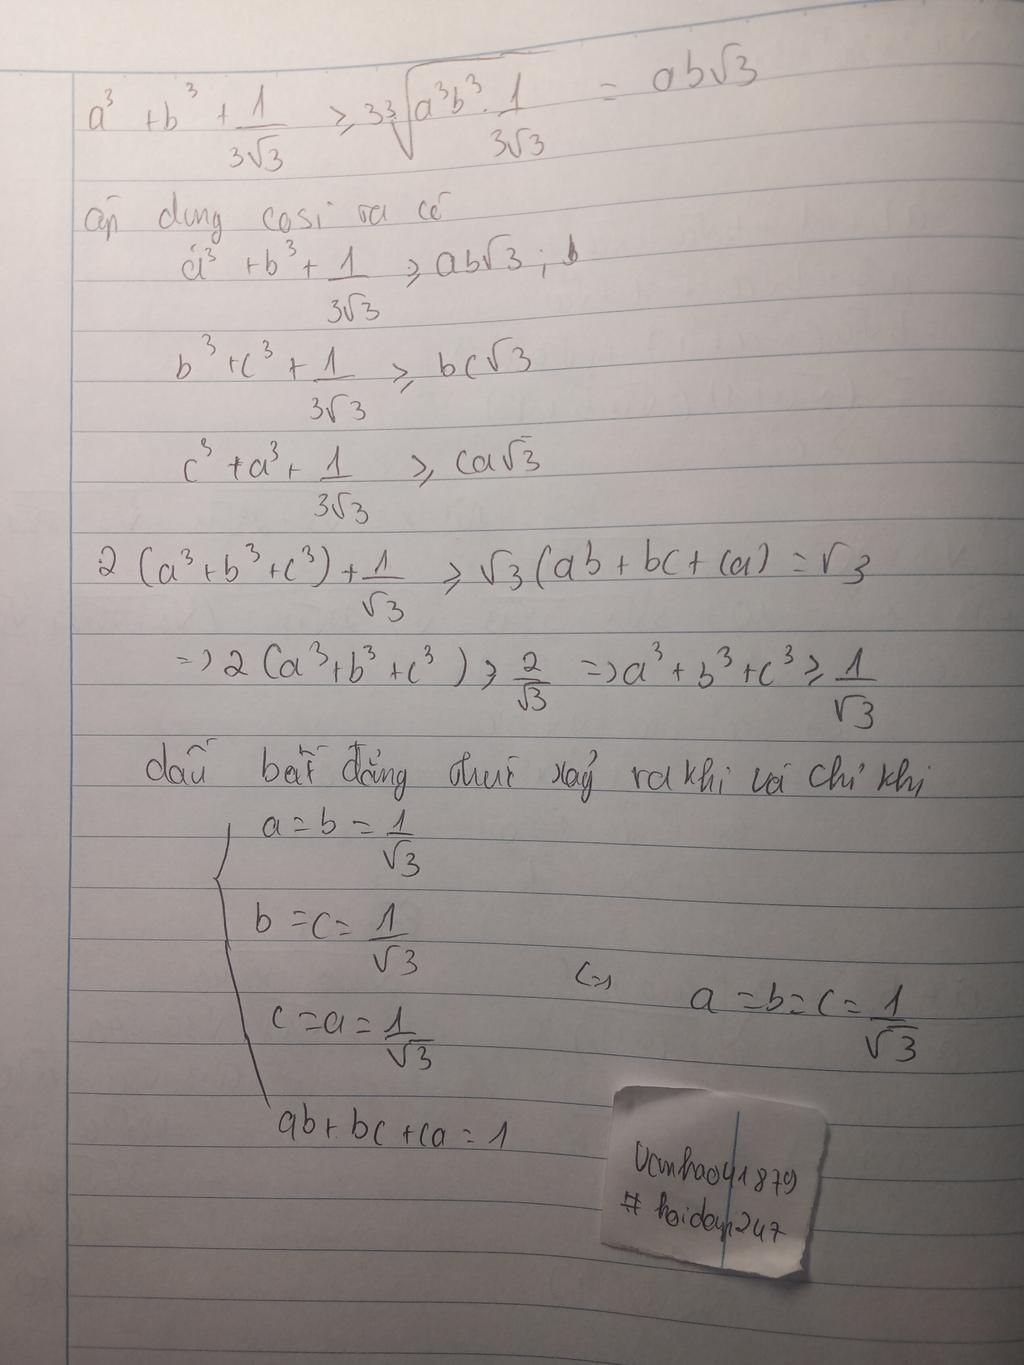 a³ + b³ + 1/3√3 ≥ 3∛(a³b³. 1/3√3) = ab√3
áp dung cosi ta có
a³ + b³ + 1/3√3 ≥ ab√3 ; b
b³ + c³ + 1/3√3 ≥ bc√3
c³ + a³ + 1/3√3 ≥ ca√3
2 (a³ + b³ + c³) + 1/√3 ≥ √3 (ab + bc + ca) = √3
=> 2 (a³ + b³ + c³) ≥ 2/√3 => a³ + b³ + c³ ≥ 1/√3
dấu bất đẳng thức xảy ra khi và chỉ khi
a = b = 1/√3
b = c = 1/√3
<=> a = b = c = 1/√3
c = a = 1/√3
ab + bc + ca = 1
Vanhao41879
# hoidap247